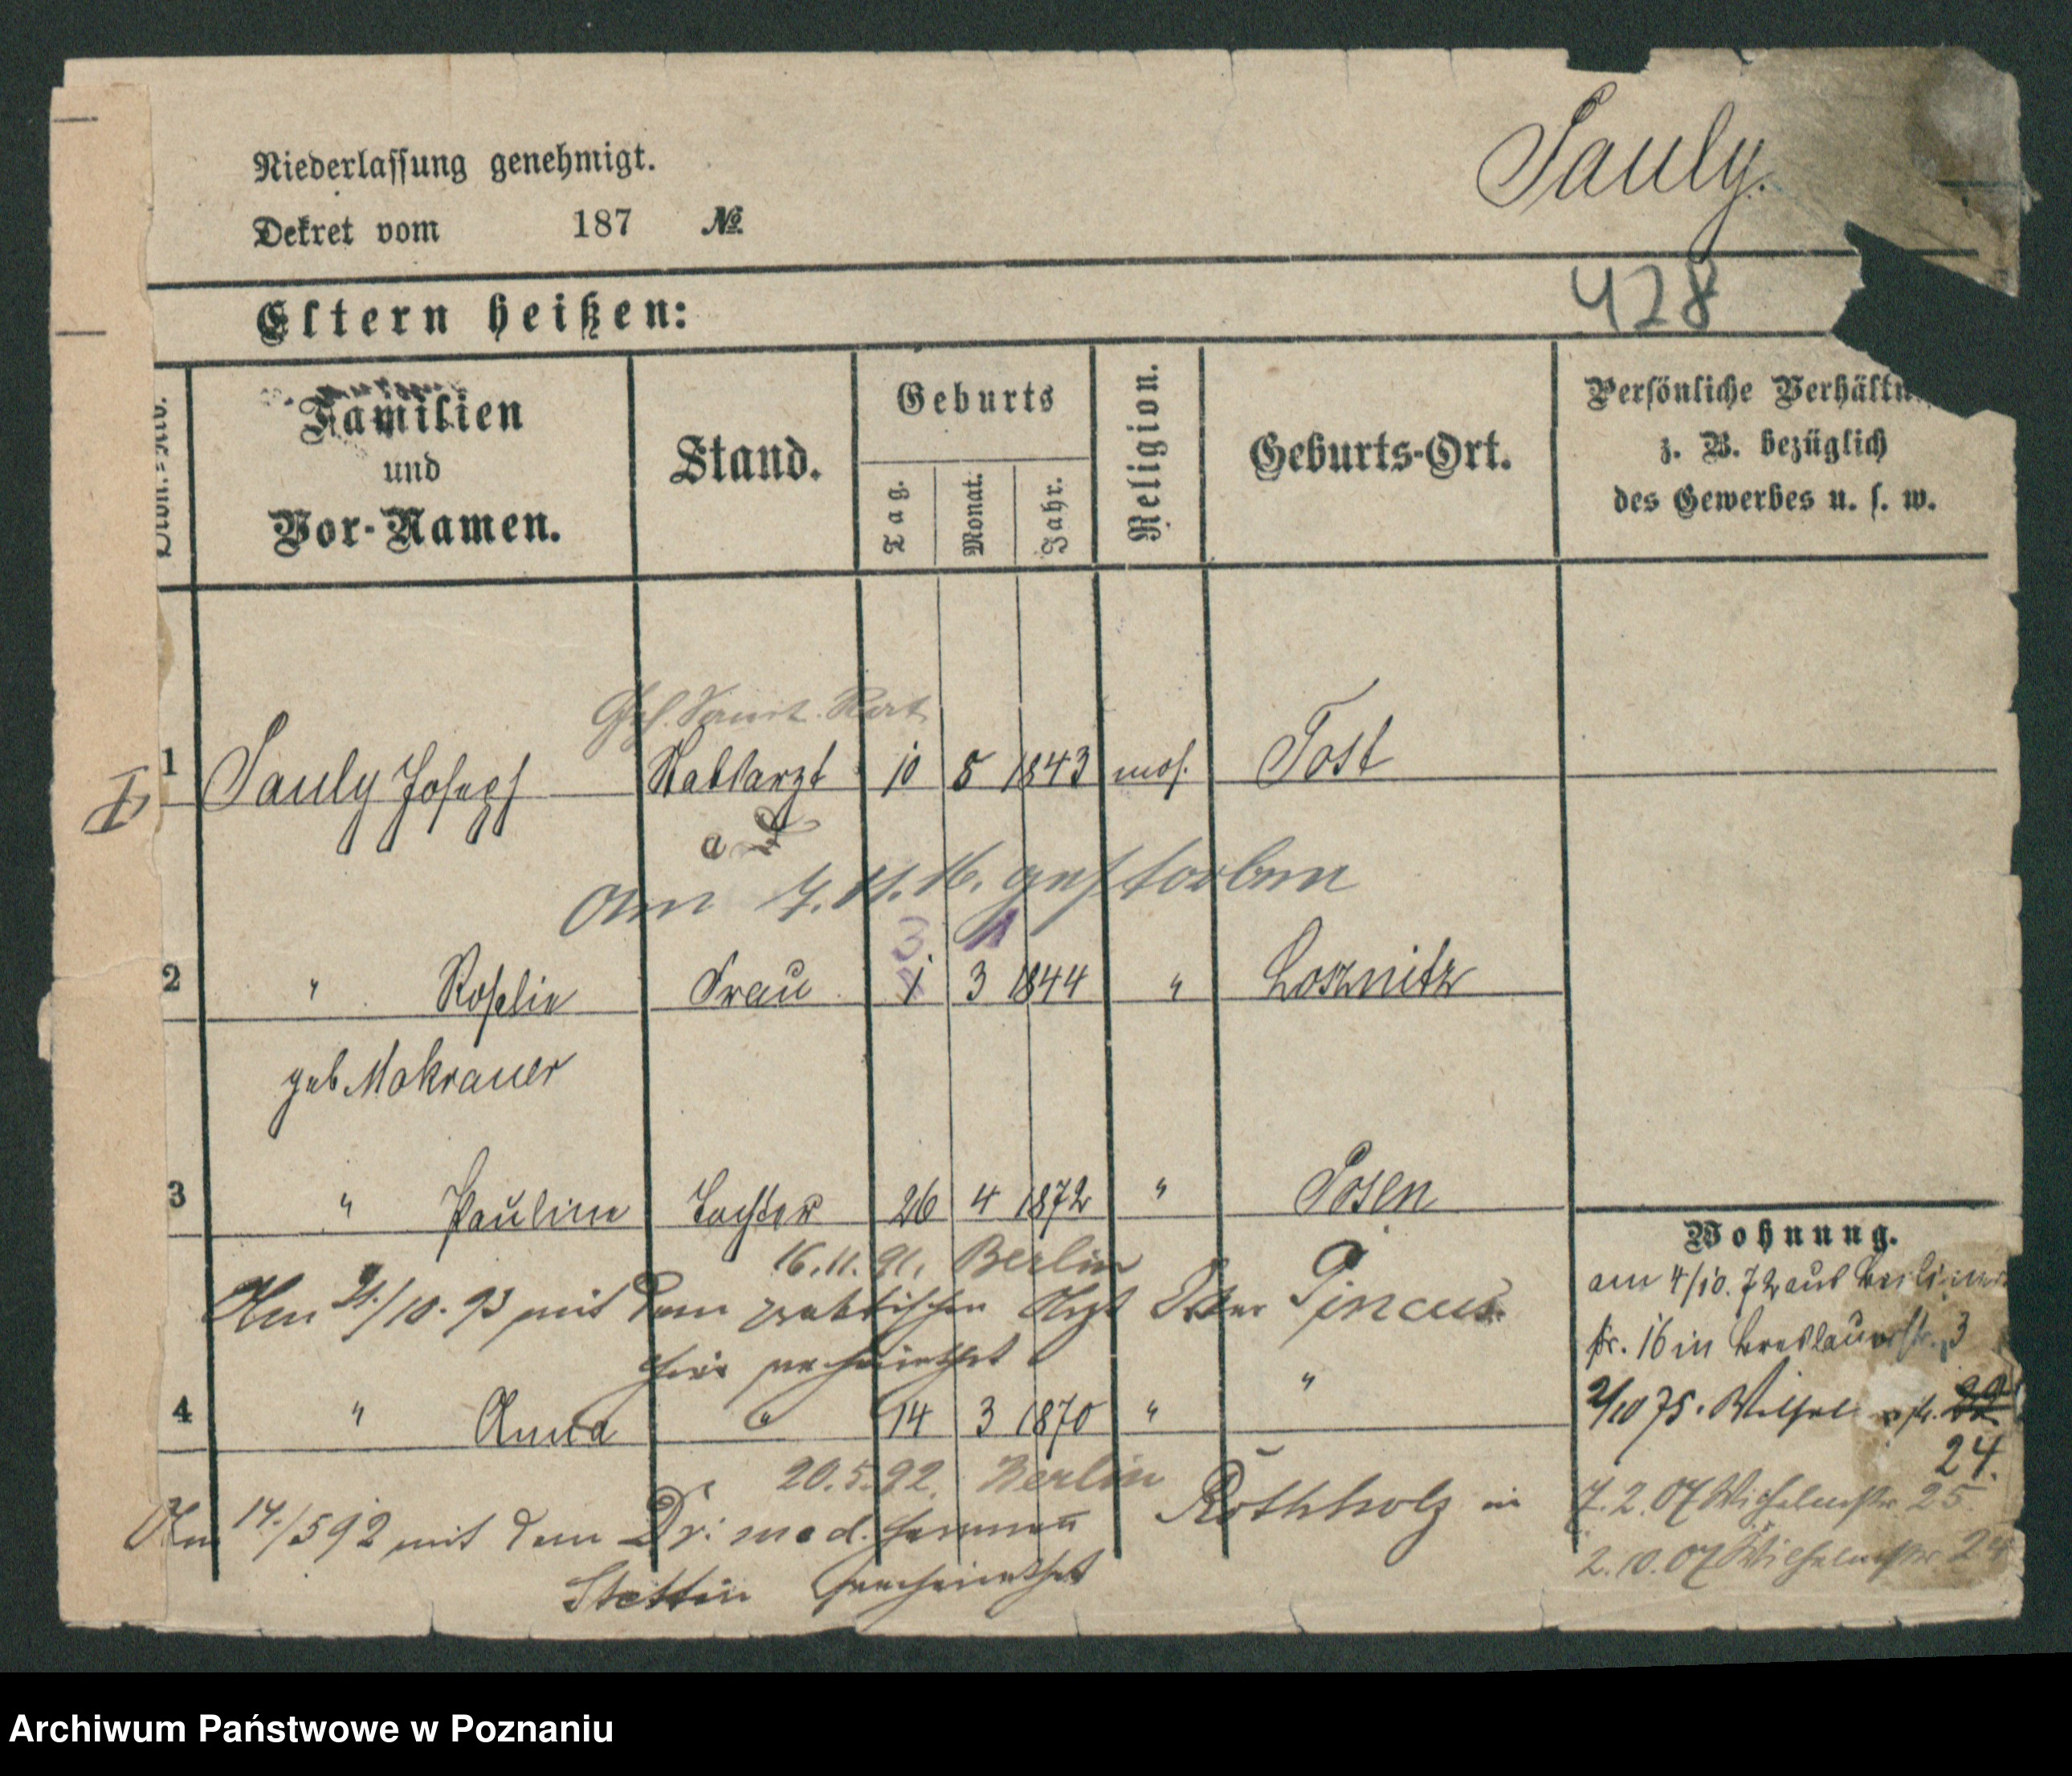 Pauly.
Niederlassung genehmigt.
Dekret vom 187 №
Eltern heißen:
428
Familien
und
Vor-Namen.
Stand.
Geburts
Tag.
Monat.
Jahr.
Religion.
Geburts-Ort.
Persönliche Verhältn
z. B. bezüglich
des Gewerbes u. s. w.
Geh. Sanit. Rat
1 Pauly Joseph Stabsarzt 10 5 1843 mos. Tost
a D
am 7.11.16. gestorben
3. 11
2 " Rosalie Frau 1 3 1844 "
geb Mokrauer
3 " Pauline Tochter 26 4 1872 " Posen
16.11.91. Berlin
Am 21./10. 93 mit dem praktischen Arzt Pincus
hier verheirathet
4 " Anna " 14 3 1870 " "
20.5.92. Berlin
Am 14./5 92 mit dem Dr. med. Hermann Rothholz in
Stettin verheirathet
Wohnung.
am 4/10.72 aus Berliner
str. 16 in Breslauerstr. 3
2/10 75. Wilhel str. 22
24.
7.2.07 Wilhelmstr. 25
2.10.07 Wilhelmstr. 24
Archiwum Państwowe w Poznaniu